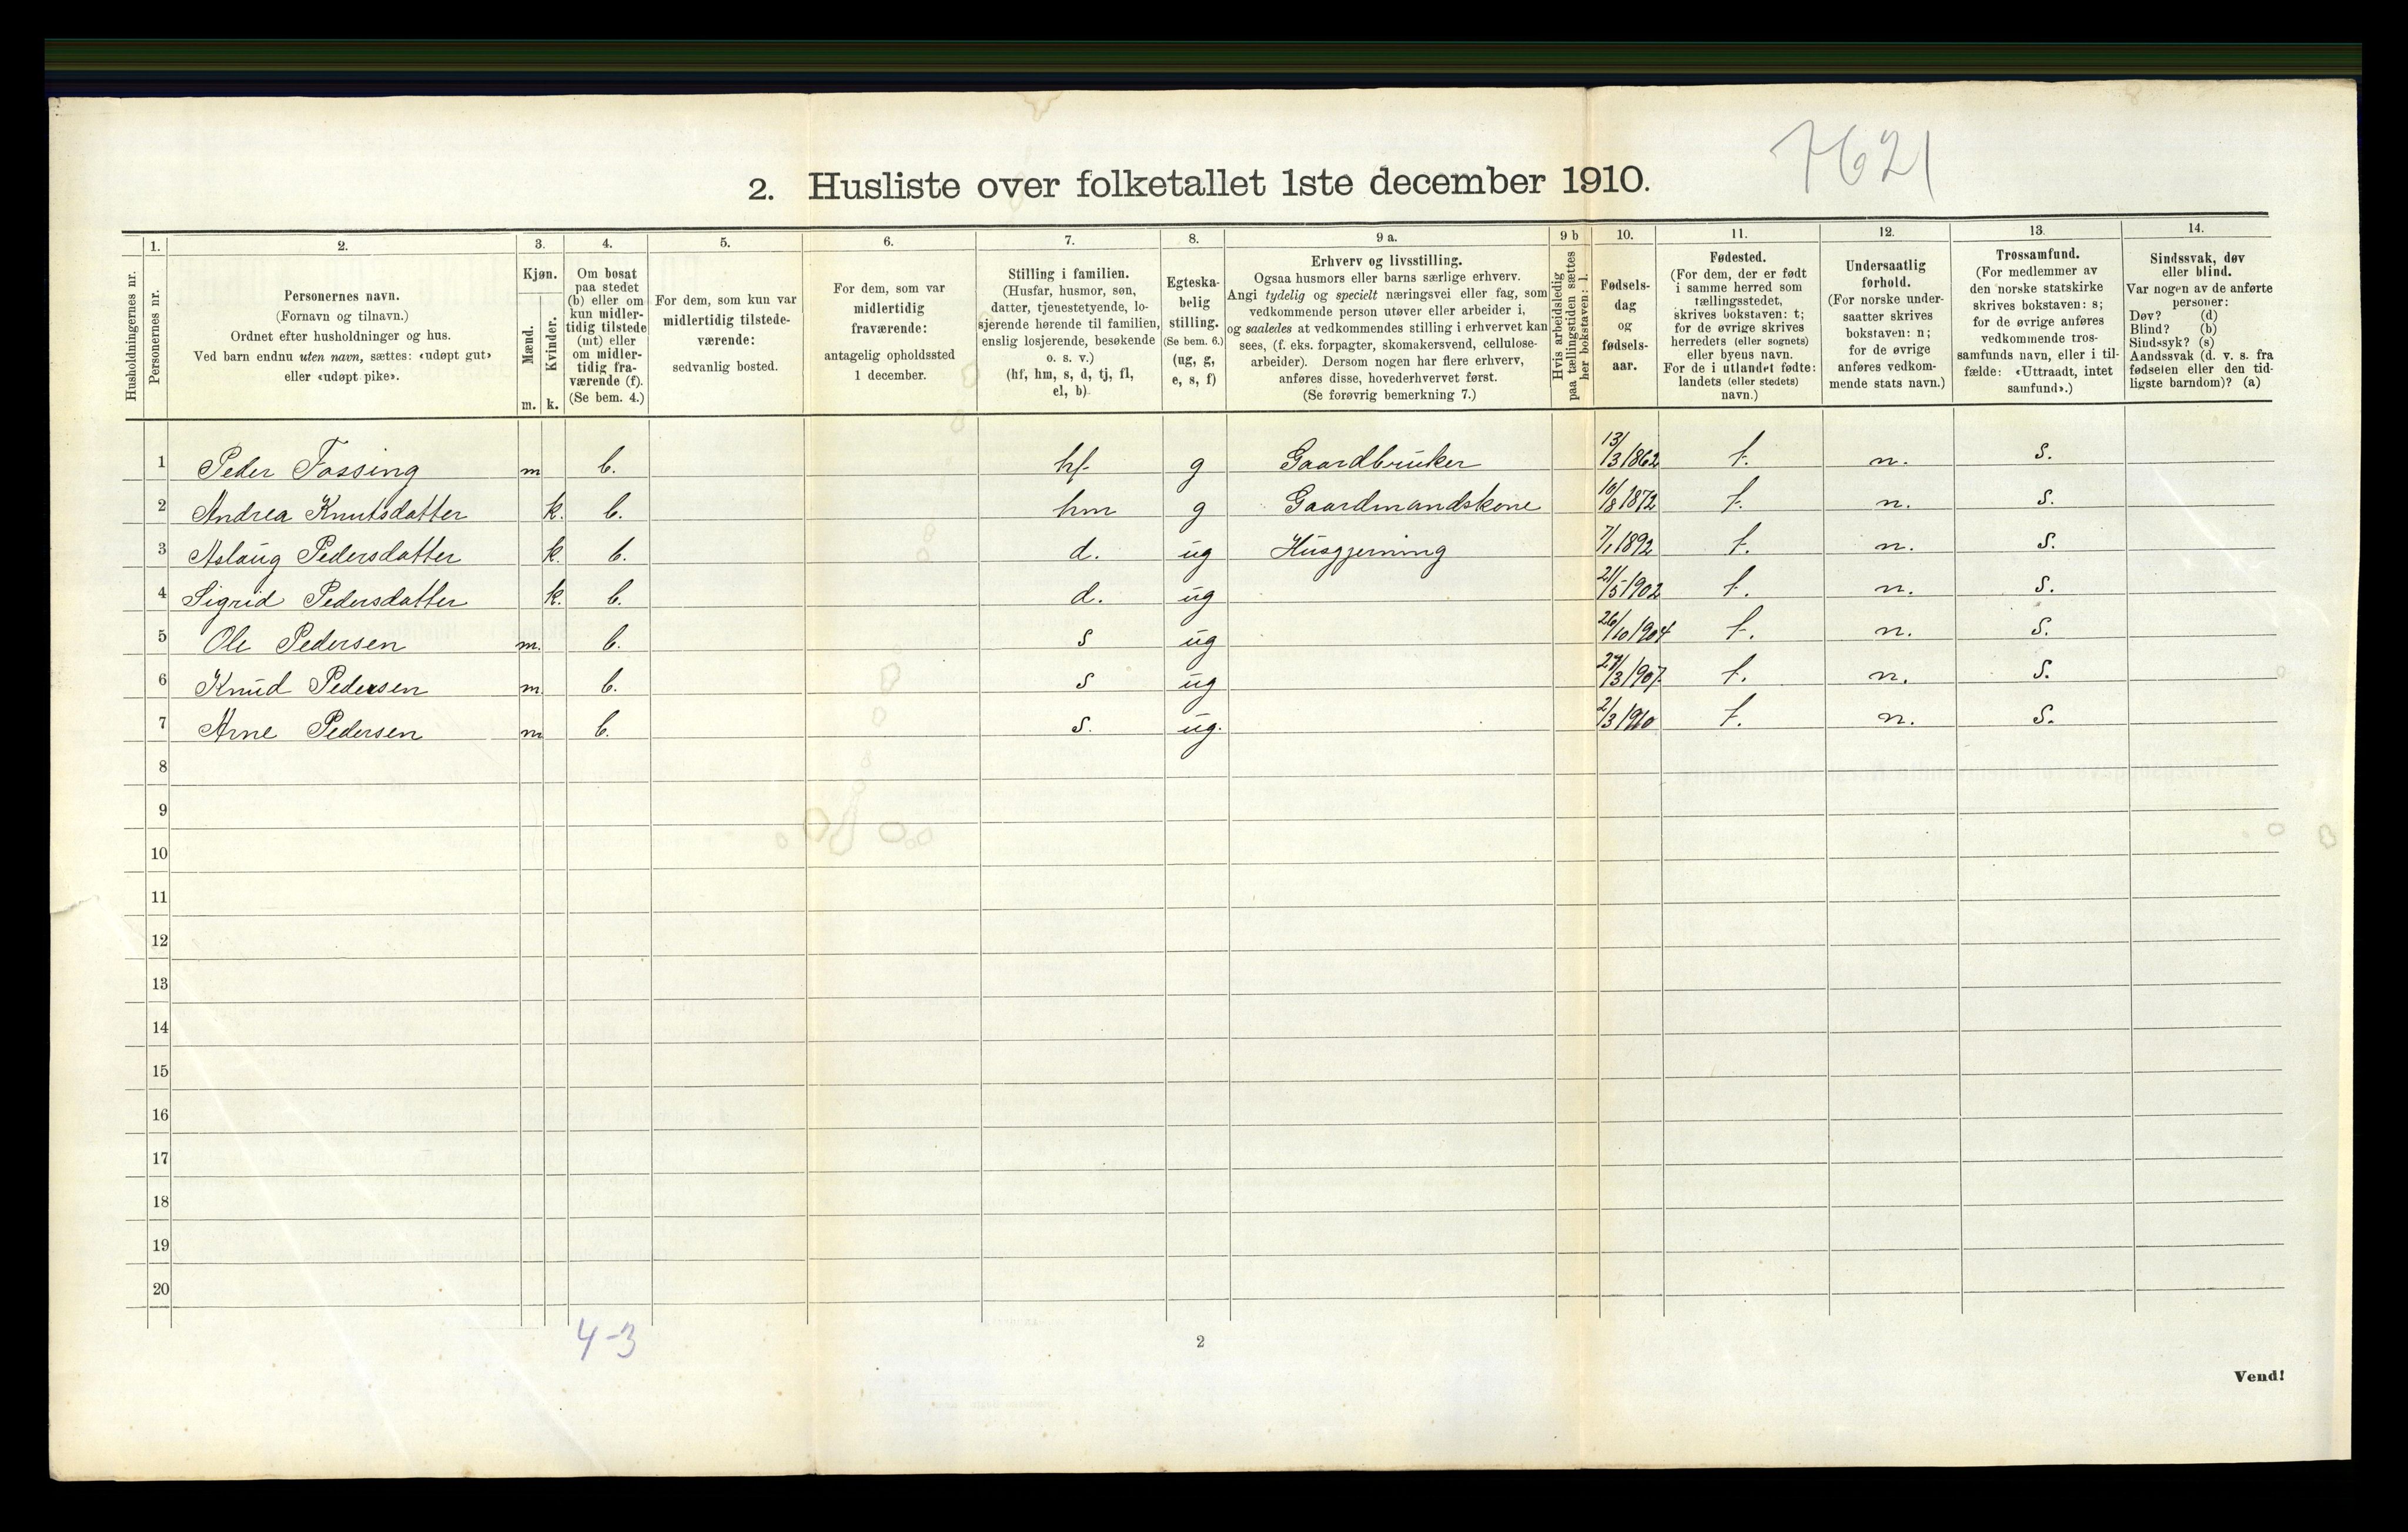 7621
2. Husliste over folketallet 1ste december 1910.
Husholdningernes nr.
1.
Personernes nr.
2.
Personernes navn.
(Fornavn og tilnavn.)
Ordnet efter husholdninger og hus.
Ved barn endnu uten navn, sættes: «udøpt gut»
eller «udøpt pike».
3.
Kjøn.
Mænd.
Kvinder.
m. k.
4.
Om bosat
paa stedet
(b) eller om
kun midler-
tidig tilstede
(mt) eller
om midler-
tidig fra-
værende (f).
(Se bem. 4.)
5.
For dem, som kun var
midlertidig tilstede-
værende:
sedvanlig bosted.
6.
For dem, som var
midlertidig
fraværende:
antagelig opholdssted
1 december.
7.
Stilling i familien.
(Husfar, husmor, søn,
datter, tjenestetyende, lo-
sjerende hørende til familien,
enslig losjerende, besøkende
o. s. v.)
(hf, hm, s, d, tj, fl,
el, b)
8.
Egteska-
belig
stilling.
(Se bem. 6.)
(ug, g,
e, s, f)
9 a.
Erhverv og livsstilling.
Ogsaa husmors eller barns særlige erhverv.
Angi tydelig og specielt næringsvei eller fag, som
vedkommende person utøver eller arbeider i,
og saaledes at vedkommendes stilling i erhvervet kan
sees, (f. eks. forpagter, skomakersvend, cellulose-
arbeider). Dersom nogen har flere erhverv,
anføres disse, hovederhvervet først.
(Se forøvrig bemerkning 7.)
9 b
Hvis arbeidsledig
paa tællingstiden sættes
her bokstaven: l.
10.
Fødsels-
dag
og
fødsels-
aar.
11.
Fødested.
(For dem, der er født
i samme herred som
tællingsstedet,
skrives bokstaven: t;
for de øvrige skrives
herredets (eller sognets)
eller byens navn.
For de i utlandet fødte:
landets (eller stedets)
navn.)
12.
Undersaatlig
forhold.
(For norske under-
saatter skrives
bokstaven: n;
for de øvrige
anføres vedkom-
mende stats navn.)
13.
Trossamfund.
(For medlemmer av
den norske statskirke
skrives bokstaven: s;
for de øvrige anføres
vedkommende tros-
samfunds navn, eller i til-
fælde: «Uttraadt, intet
samfund».)
14.
Sindssvak, døv
eller blind.
Var nogen av de anførte
personer:
Døv? (d)
Blind? (b)
Sindssyk? (s)
Aandssvak (d. v. s. fra
fødselen eller den tid-
ligste barndom)? (a)
1 Peder Fossing m b. hf. g Gaardbruker 13/3 1862 t. n. s.
2 Andrea Knutsdatter k. b. hm g Gaardmandskone 10/8 1872 t. n. s.
3 Aslaug Pedersdatter k. b. d. ug Husgjerning 7/1 1892 t. n. s.
4 Sigrid Pedersdatter k. b. d. ug 21/5 1902 t. n. s.
5 Ole Pedersen m. b. s ug 26/10 1904 t. n. s.
6 Knud Pedersen m. b. s ug 27/3 1907 t. n. s.
7 Arne Pedersen m b. s. ug. 2/3 1910 t. n. s.
8
9
10
11
12
13
14
15
16
17
18
19
20
4-3
2
Vend!